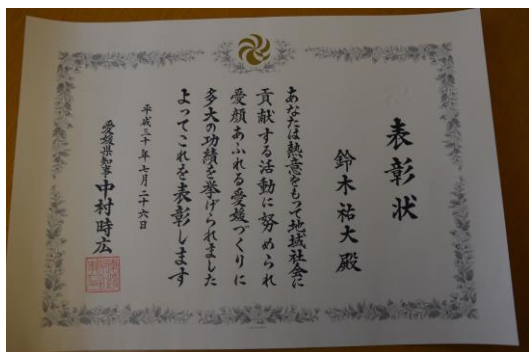 表彰状
鈴木祐大殿
あなたは熱意をもって地域社会に
貢献する活動に努められ
愛顔あふれる愛媛づくりに
多大の功績を挙げられました
よってこれを表彰します
平成三十年七月二十六日
愛媛県知事 中村時広